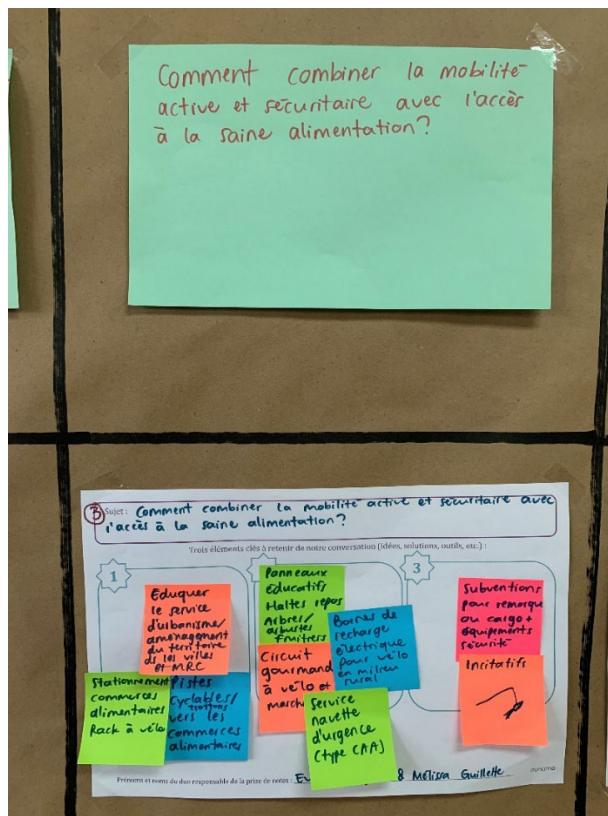 Comment combiner la mobilité
active et sécuritaire avec l'accès
à la saine alimentation?
3 Sujet : Comment combiner la mobilité active et sécuritaire avec
l'accès à la saine alimentation?
Trois éléments clés à retenir de notre conversation (idées, solutions, outils, etc.) :
1
Eduquer
le service
d'urbanisme/
aménagement
du territoire
ds les villes
et MRC
Stationnement
commerces
alimentaires
Rack à vélo
Pistes
cyclables/
trottoirs
vers les
commerces
alimentaires
Panneaux
Éducatifs
Haltes repos
Arbres/
arbustes
fruitiers
Circuit
gourmand
à vélo et
marche
Bornes de
recharge
électrique
pour vélo
en milieu
rural
Service
navette
d'urgence
(type CAA)
3
Subventions
pour remorque
ou cargo +
équipements
sécurité
Incitatifs
Prénoms et noms du duo responsable de la prise de notes : & Mélissa Guillette
dynamo